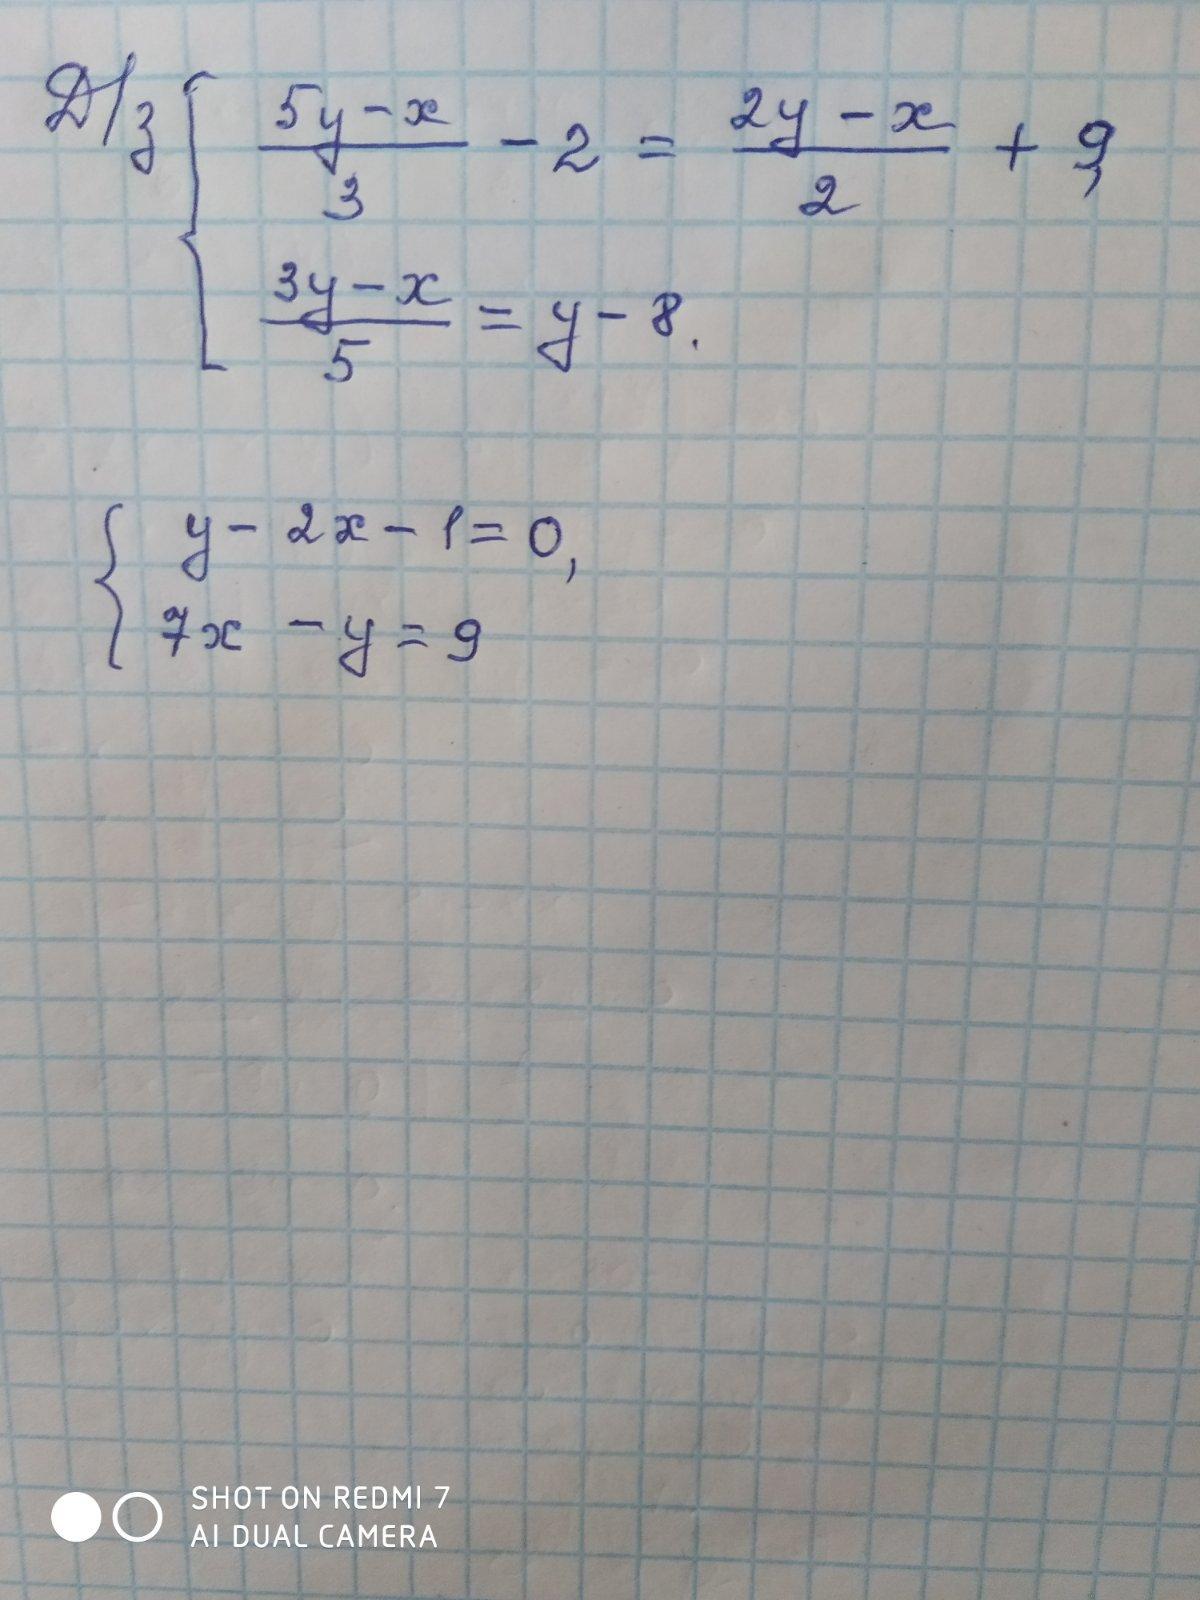 Д/з { (5y - x)/3 - 2 = (2y - x)/2 + 9,
(3y - x)/5 = y - 8.
{ y - 2x - 1 = 0,
7x - y = 9
SHOT ON REDMI 7
AI DUAL CAMERA